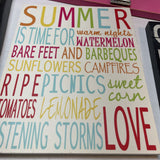 SUMMER
IS TIME FOR warm nights
WATERMELON
BARE FEET AND BARBEQUES
SUNFLOWERS CAMPFIRES
RIPE PICNICS sweet corn
TOMATOES LEMONADE
LISTENING STORMS LOVE